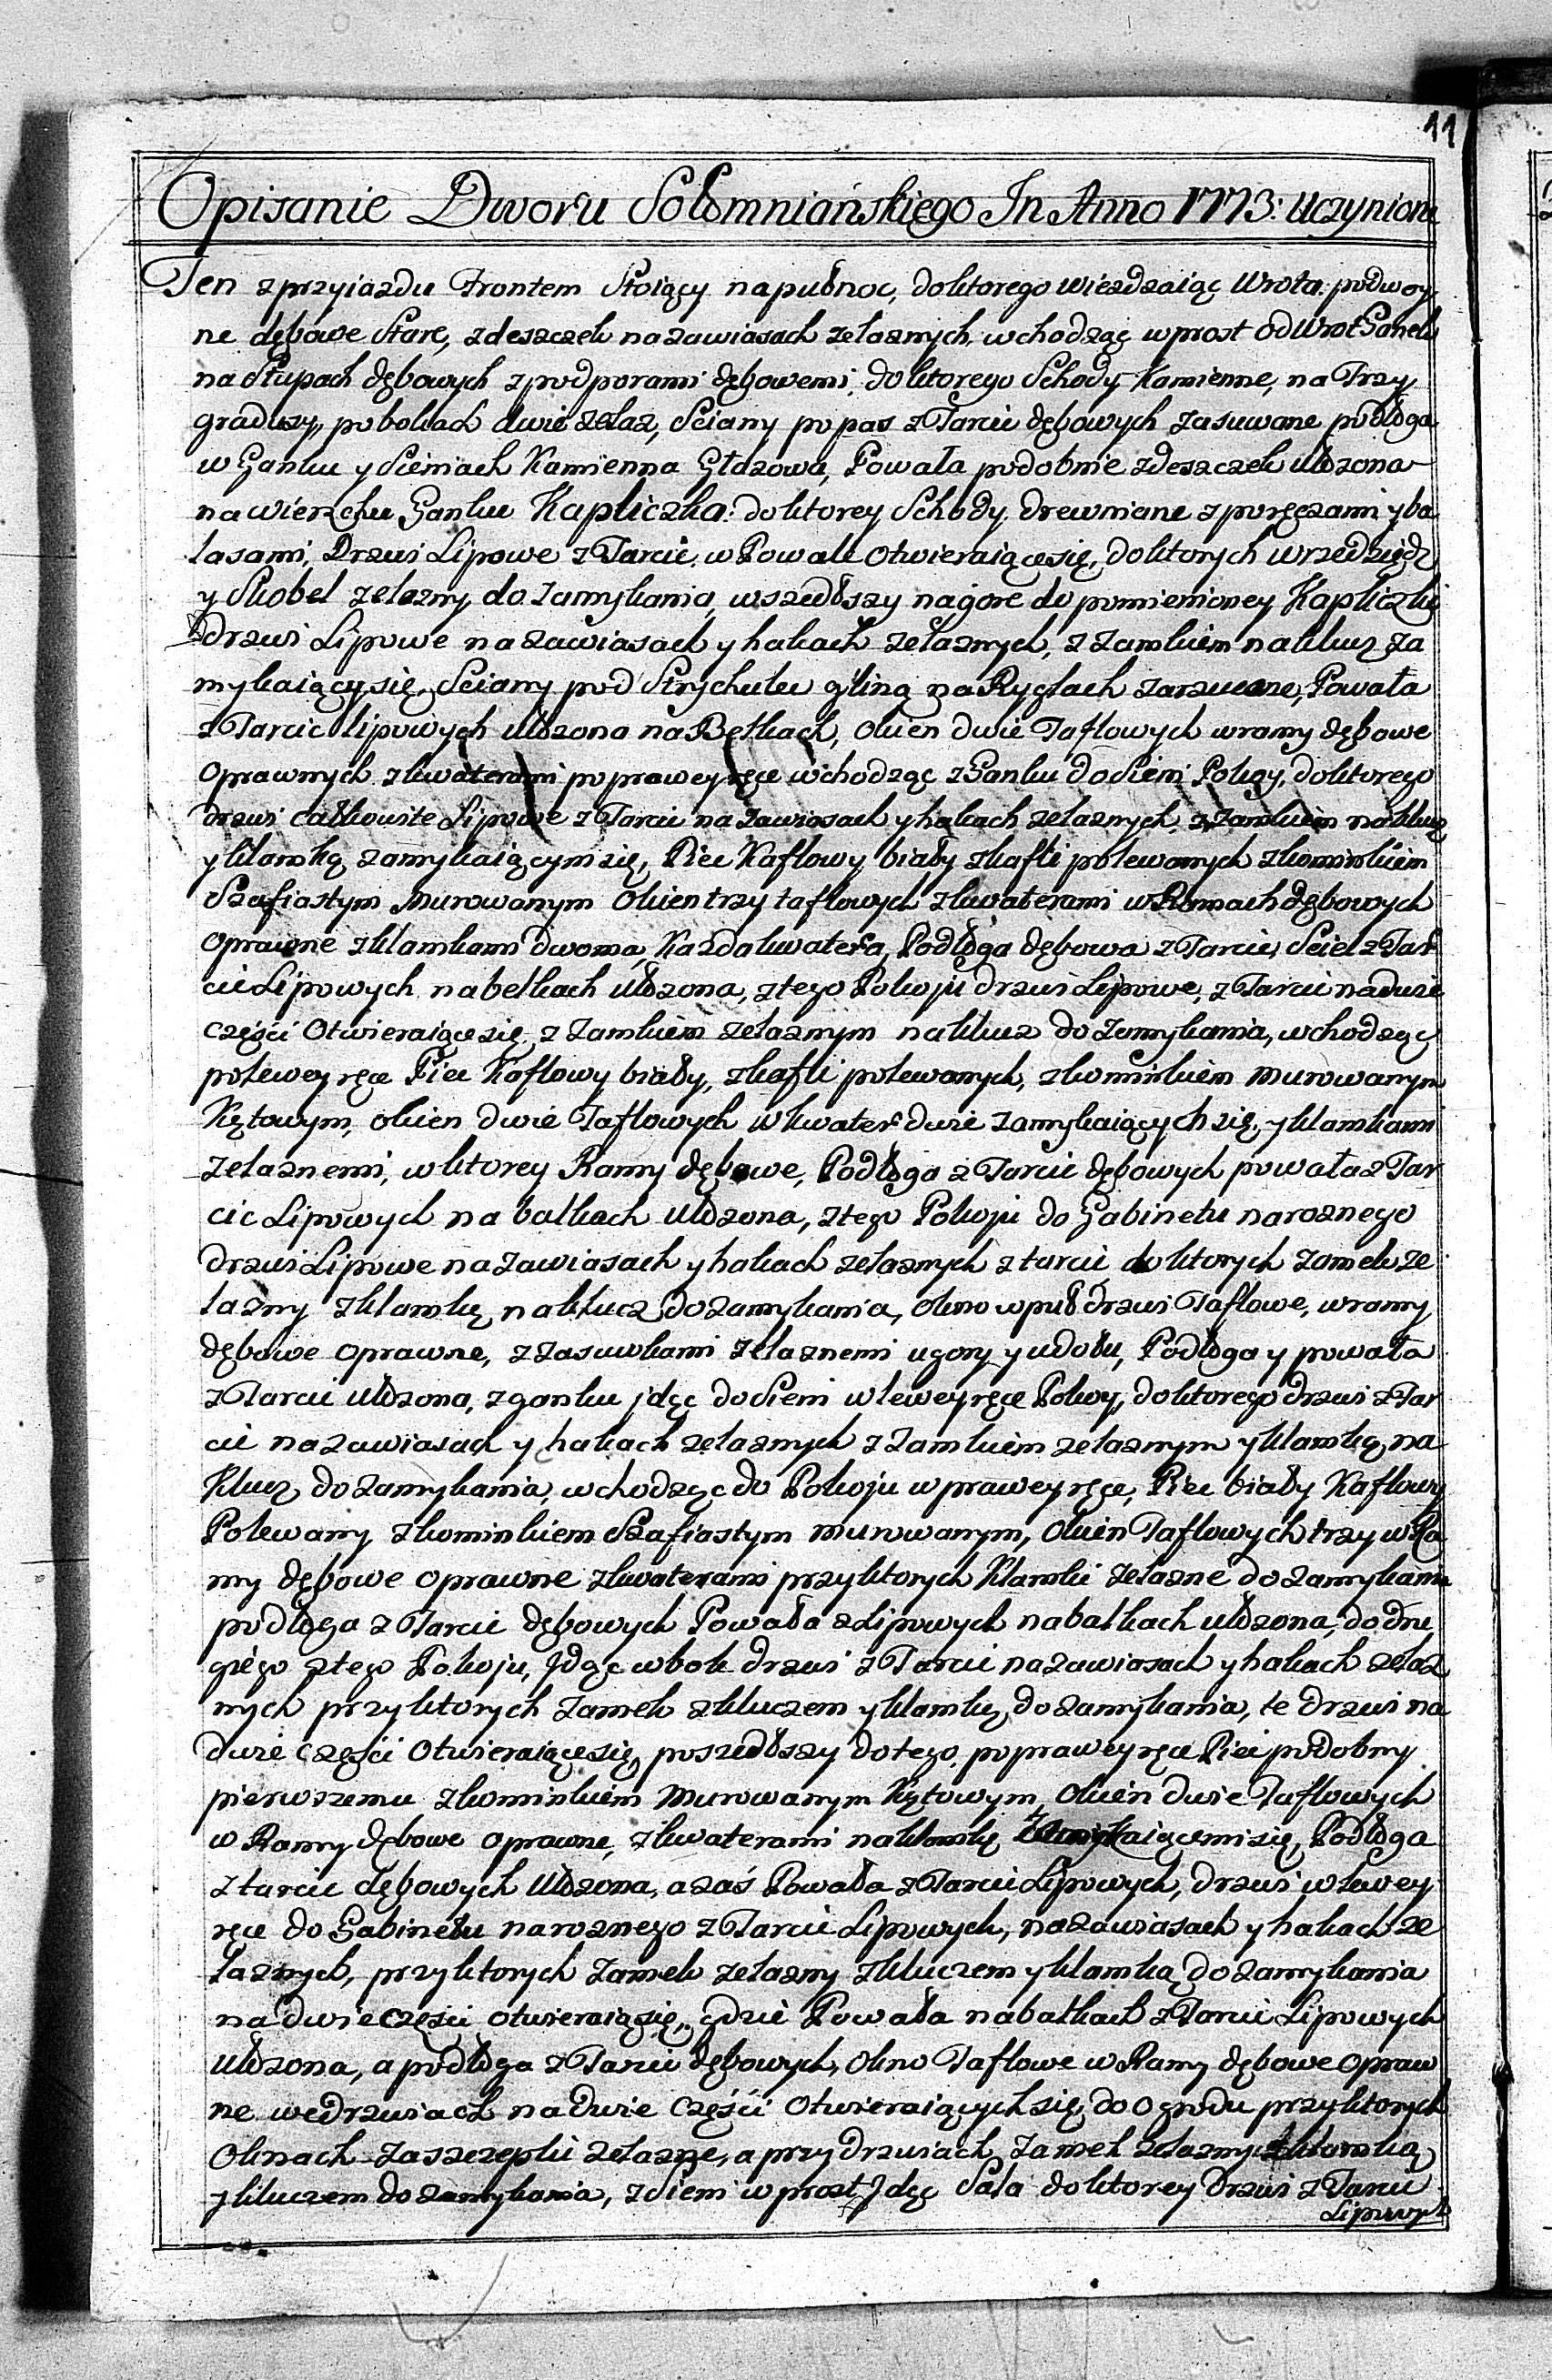 11
Opisanie Dworu Sołomniańskiego In Anno 1773: Uczynione
Ten z przyiazdu Frontem Stoiący na pułnoc, do ktorego wieżdzaiąc Wrota podwoy
ne dębowe Stare, z deszczek na zawiasach zelaznych, wchodząc w prost od Wrot Ganek
na Słupach dębowych z podporami dębowemi, do ktorego Schody Kamienne, na Trzy
gradusy, po bokach dwie zelaz, Sciany po pas z Tarcic dębowych zasuwane podłoga
w Ganku y Sieniach Kamienna Głazowa, Powała podobnie z deszczek ułozona
na wierzchu Ganku Kapliczka: do ktorey Schody drewniane z poręczami y ba
lasami, Drzwi Lipowe z Tarcic, w Powale Otwieraiące się, do ktorych wrzedziądz
y Skobel zelazny do zamykania, wszedłszy na gore do pomienioney Kapliczki
drzwi Lipowe na zawiasach y hakach zelaznych, z zamkiem na klucz za
mykaiący się, Sciany pod Strychulec gliną na Ryglach zarzucone, Powała
z Tarcic lipowych ułozona na Belkach, Okien dwie Taflowych w ramy dębowe
Oprawnych z kwaterami po prawey ręce wchodząc z Ganku do Sieni Pokoy, do ktorego
drzwi całkowite Lipowe z Tarcic na Zawiasach y hakach zelaznych, z Zamkiem na klucz
y klamką zamykaiącym się, Piec Kaflowy biały z kafli polewanych z kominkiem
Szafiastym Murowanym Okien trzy taflowych z kwaterami w Ramach dębowych
Oprawne z klamkami dwoma, Kazda kwatera, Podłoga dębowa z Tarcic, Sciel z Tar
cic Lipowych na belkach ułozona, z tego Pokoju drzwi Lipowe, z Tarcic na dwie
części Otwieraiące się, z zamkiem zelaznym na klucz do zamykania, wchodząc
po lewey ręce Piec Kaflowy biały, z kafli polewanych, z kominkiem murowanym
Kątowym, okien dwie Taflowych w kwater dwie zamykaiących się, y klamkami
zelaznemi, w ktorey Ramy dębowe, Podłoga z Tarcic dębowych powała z Tar
cic Lipowych na balkach ułozona, z tego Pokoju do Gabinetu naroznego
drzwi Lipowe na zawiasach y hakach zelaznych z tarcic do ktorych zamek ze
lazny z klamką na klucz do zamykania, Okno w puł drzwi Taflowe, w ramy
dębowe oprawne, z zasuwkami zelaznemi u gory y u dołu, Podłoga y powała
z Tarcic ułozona, z ganku jdąc do Sieni w lewey ręce Pokoy, do ktorego drzwi z Tar
cic na zawiasach y hakach zelaznych z zamkiem zelaznym y klamką na
Klucz do zamykania, wchodząc do Pokoju w prawey ręce, Piec biały Kaflowy
Polewany z kominkiem Szafiastym murowanym, Okien Taflowych trzy w Ra
my dębowe oprawne z kwaterami przy ktorych Klamki zelazne do zamykania
podłoga z Tarcic dębowych Powała z Lipowych na balkach ułozona, do dru
giego z tego Pokoju, Jdąc w bok drzwi z Tarcic na zawiasach y hakach zelaz
nych przy ktorych zamek z kluczem y klamką do zamykania, te drzwi na
dwie części Otwieraiące się, poszedłszy do tego, po prawey ręce Piec podobny
pierwszemu z kominkiem Murowanym Kątowym, Okien dwie Taflowych
w Ramy dębowe oprawne, z kwaterami na klamkę zamykaiącemi się, Podłoga
z tarcic dębowych Ułozona, a zaś Powała z Tarcic Lipowych, drzwi w lewey
ręce do Gabinetu naroznego z Tarcic Lipowych, na zawiasach y hakach ze
laznych, przy ktorych zamek zelazny z kluczem y klamką do zamykania
na dwie części otwieraią się, gdzie Powała na balkach z Tarcic Lipowych
ułozona, a podłoga z Tarcic dębowych, Okno Taflowe w Ramy dębowe opraw
ne we drzwiach na dwie części Otwieraiących się, do Ogrodu przy ktorych
Oknach zaszczepki zelazne, a przy drzwiach zamek zelazny z klamką
y kluczem do zamykania, z Sieni w prost Jdąc Sala do ktorey Drzwi z Tarcic
Lipowych